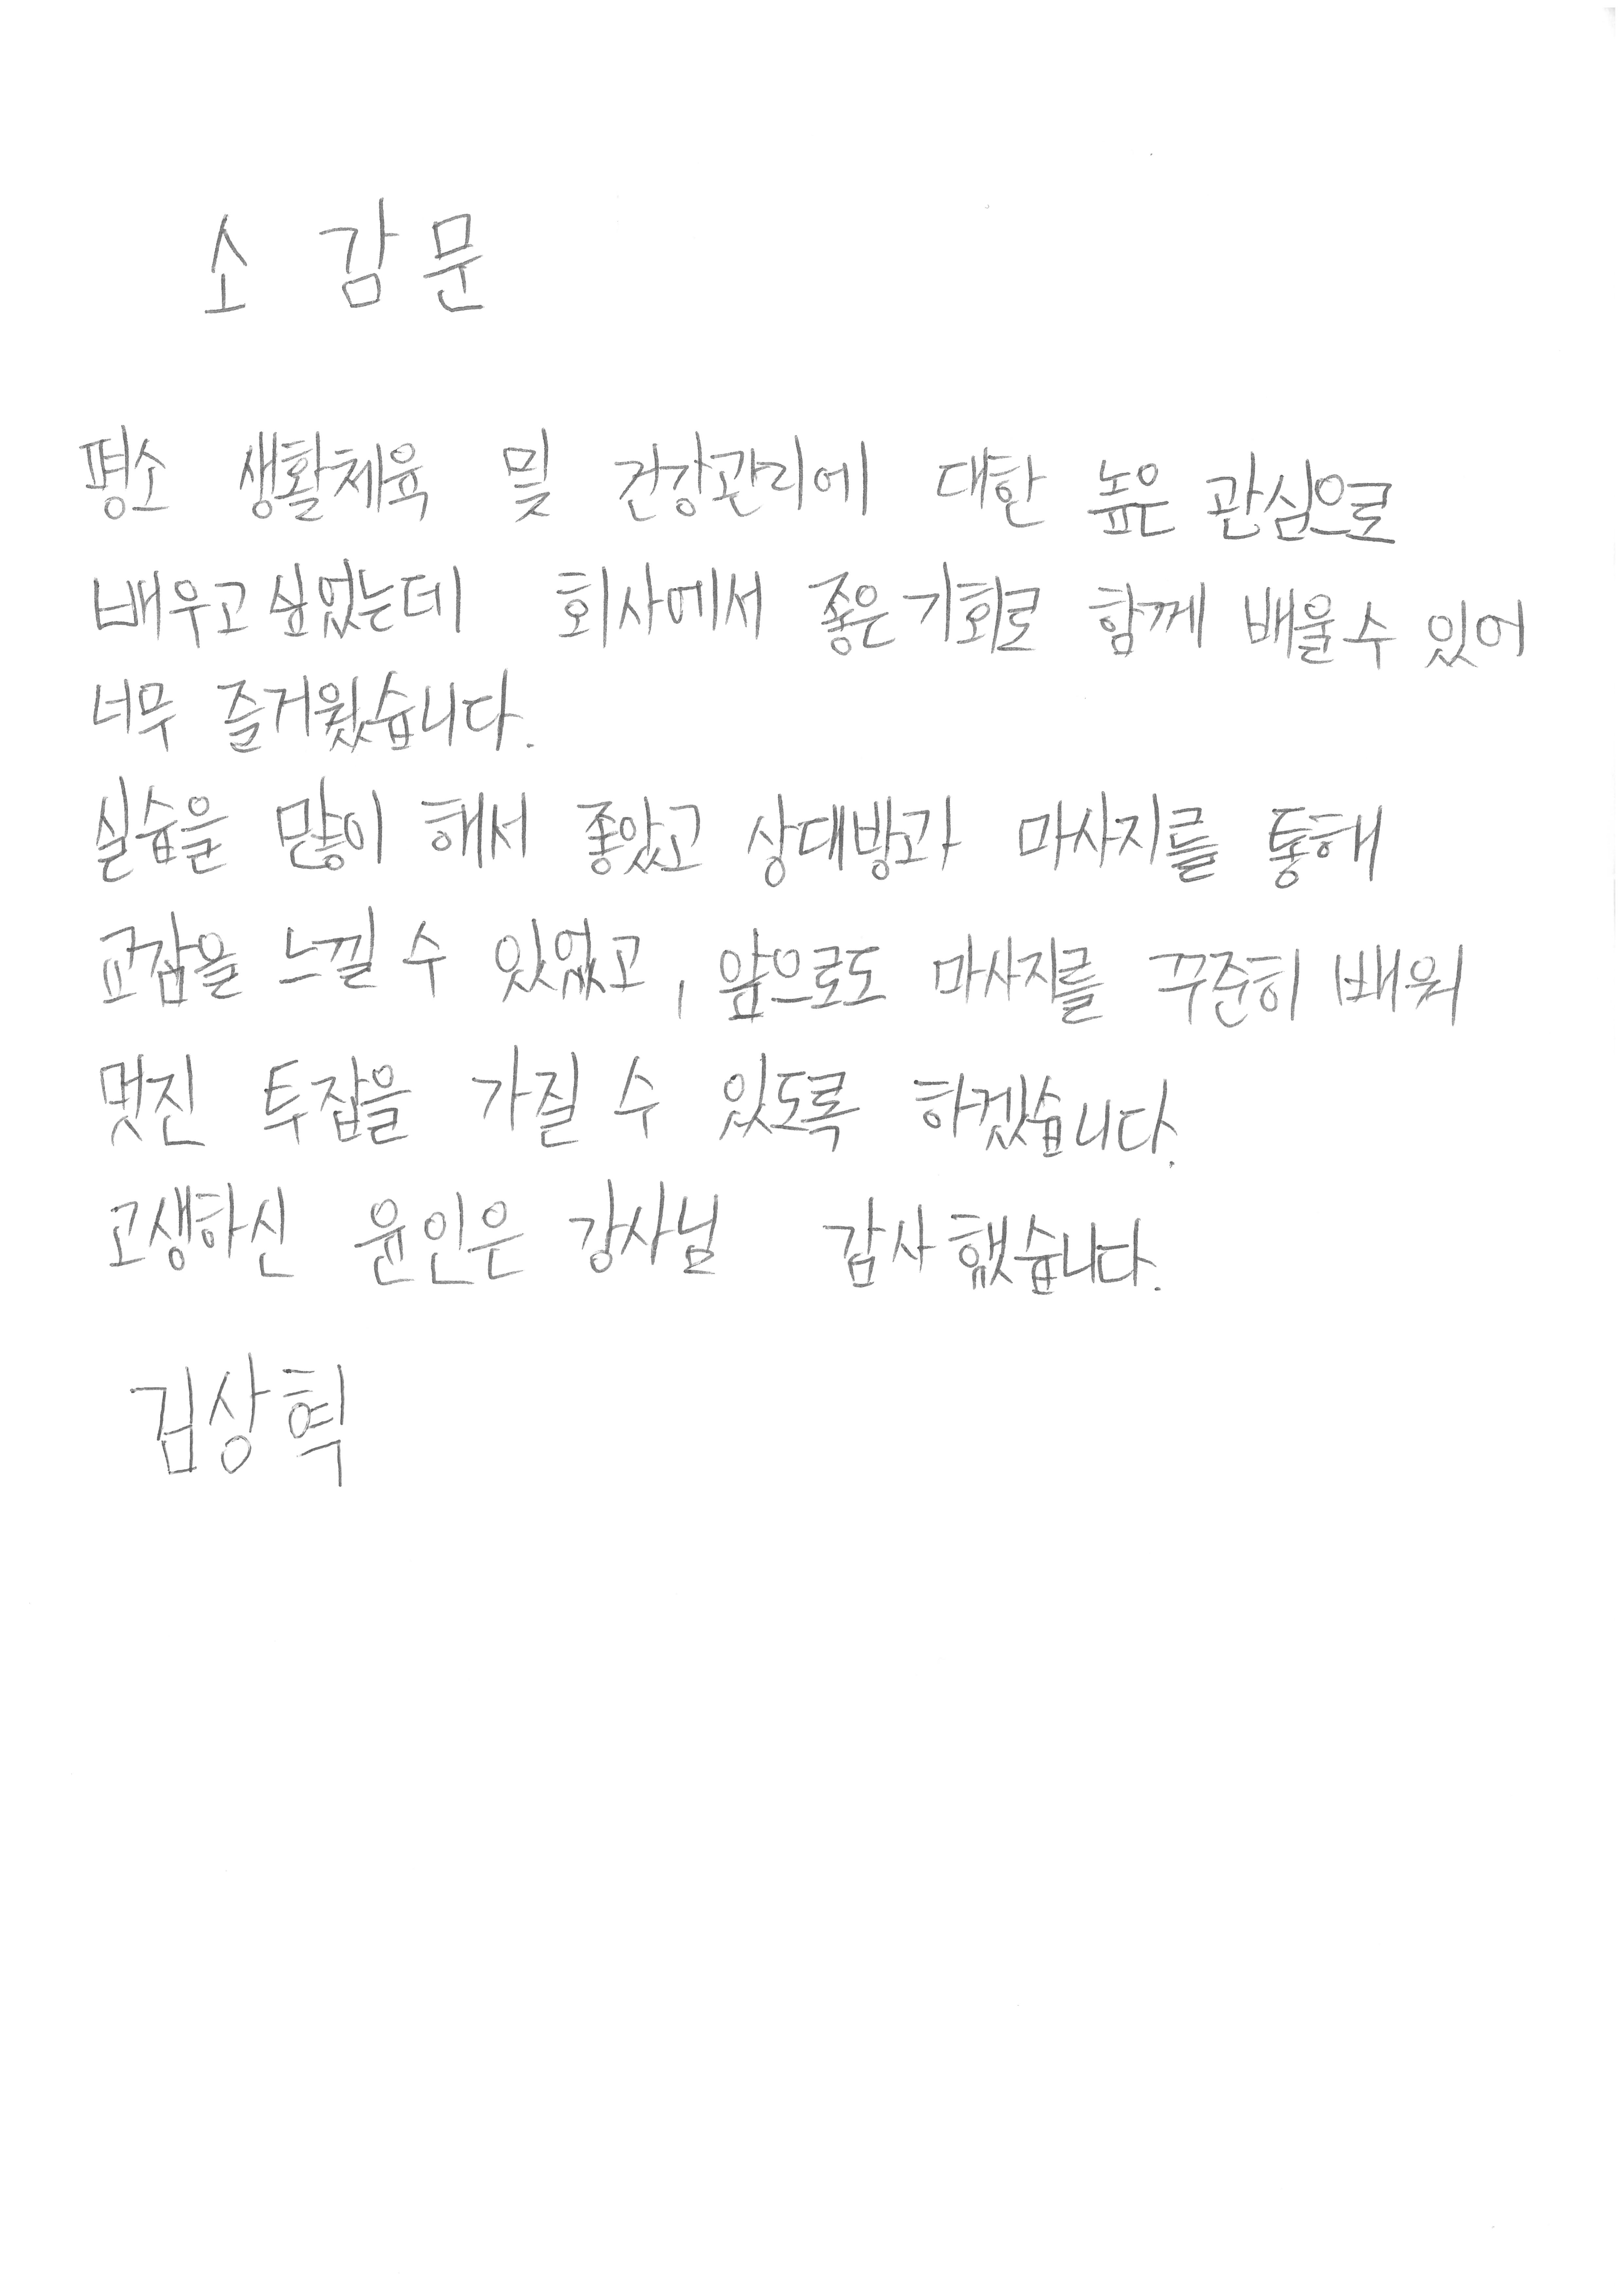 소 감문
평소 생활체육 및 건강관리에 대한 높은 관심으로
배우고 싶었는데 회사에서 좋은 기회로 함께 배울 수 있어
너무 즐거웠습니다.
실습을 많이 해서 좋았고 상대방과 마사지를 통해
교감을 느낄 수 있었고, 앞으로도 마사지를 꾸준히 배워
멋진 투잡을 가질 수 있도록 하겠습니다.
고생하신 윤인은 강사님 감사했습니다.
김상혁